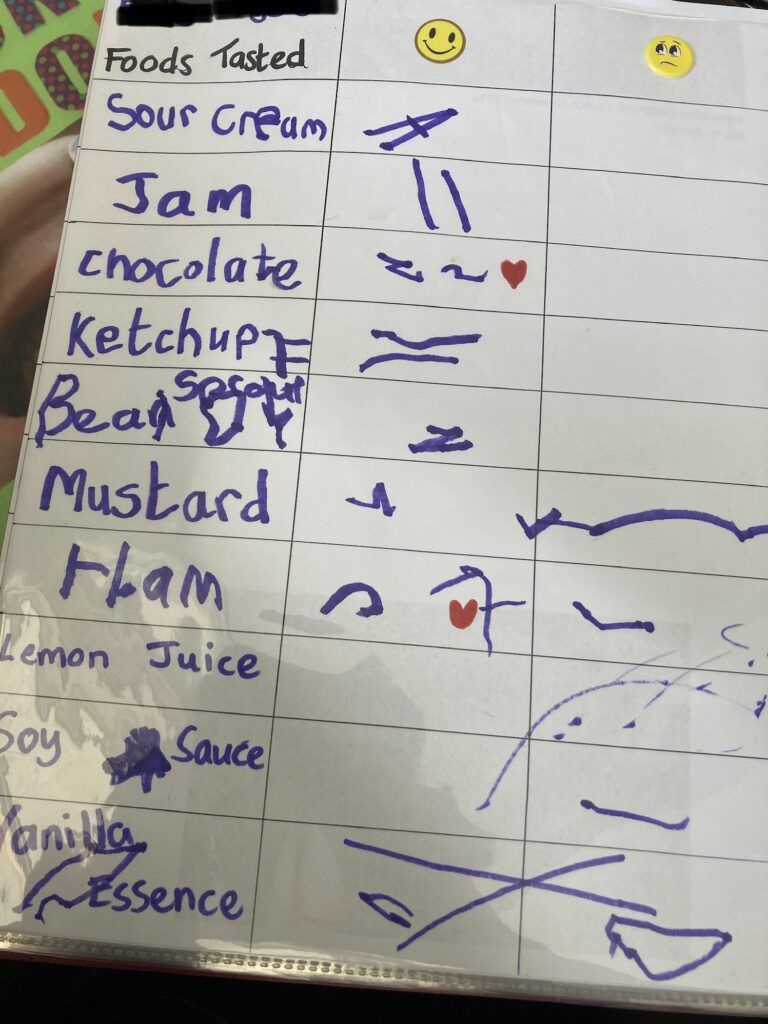 Foods Tasted
Sour Cream
Jam
Chocolate
Ketchup
Bean
Mustard
Ham
Lemon Juice
Soy Sauce
Vanilla
Essence